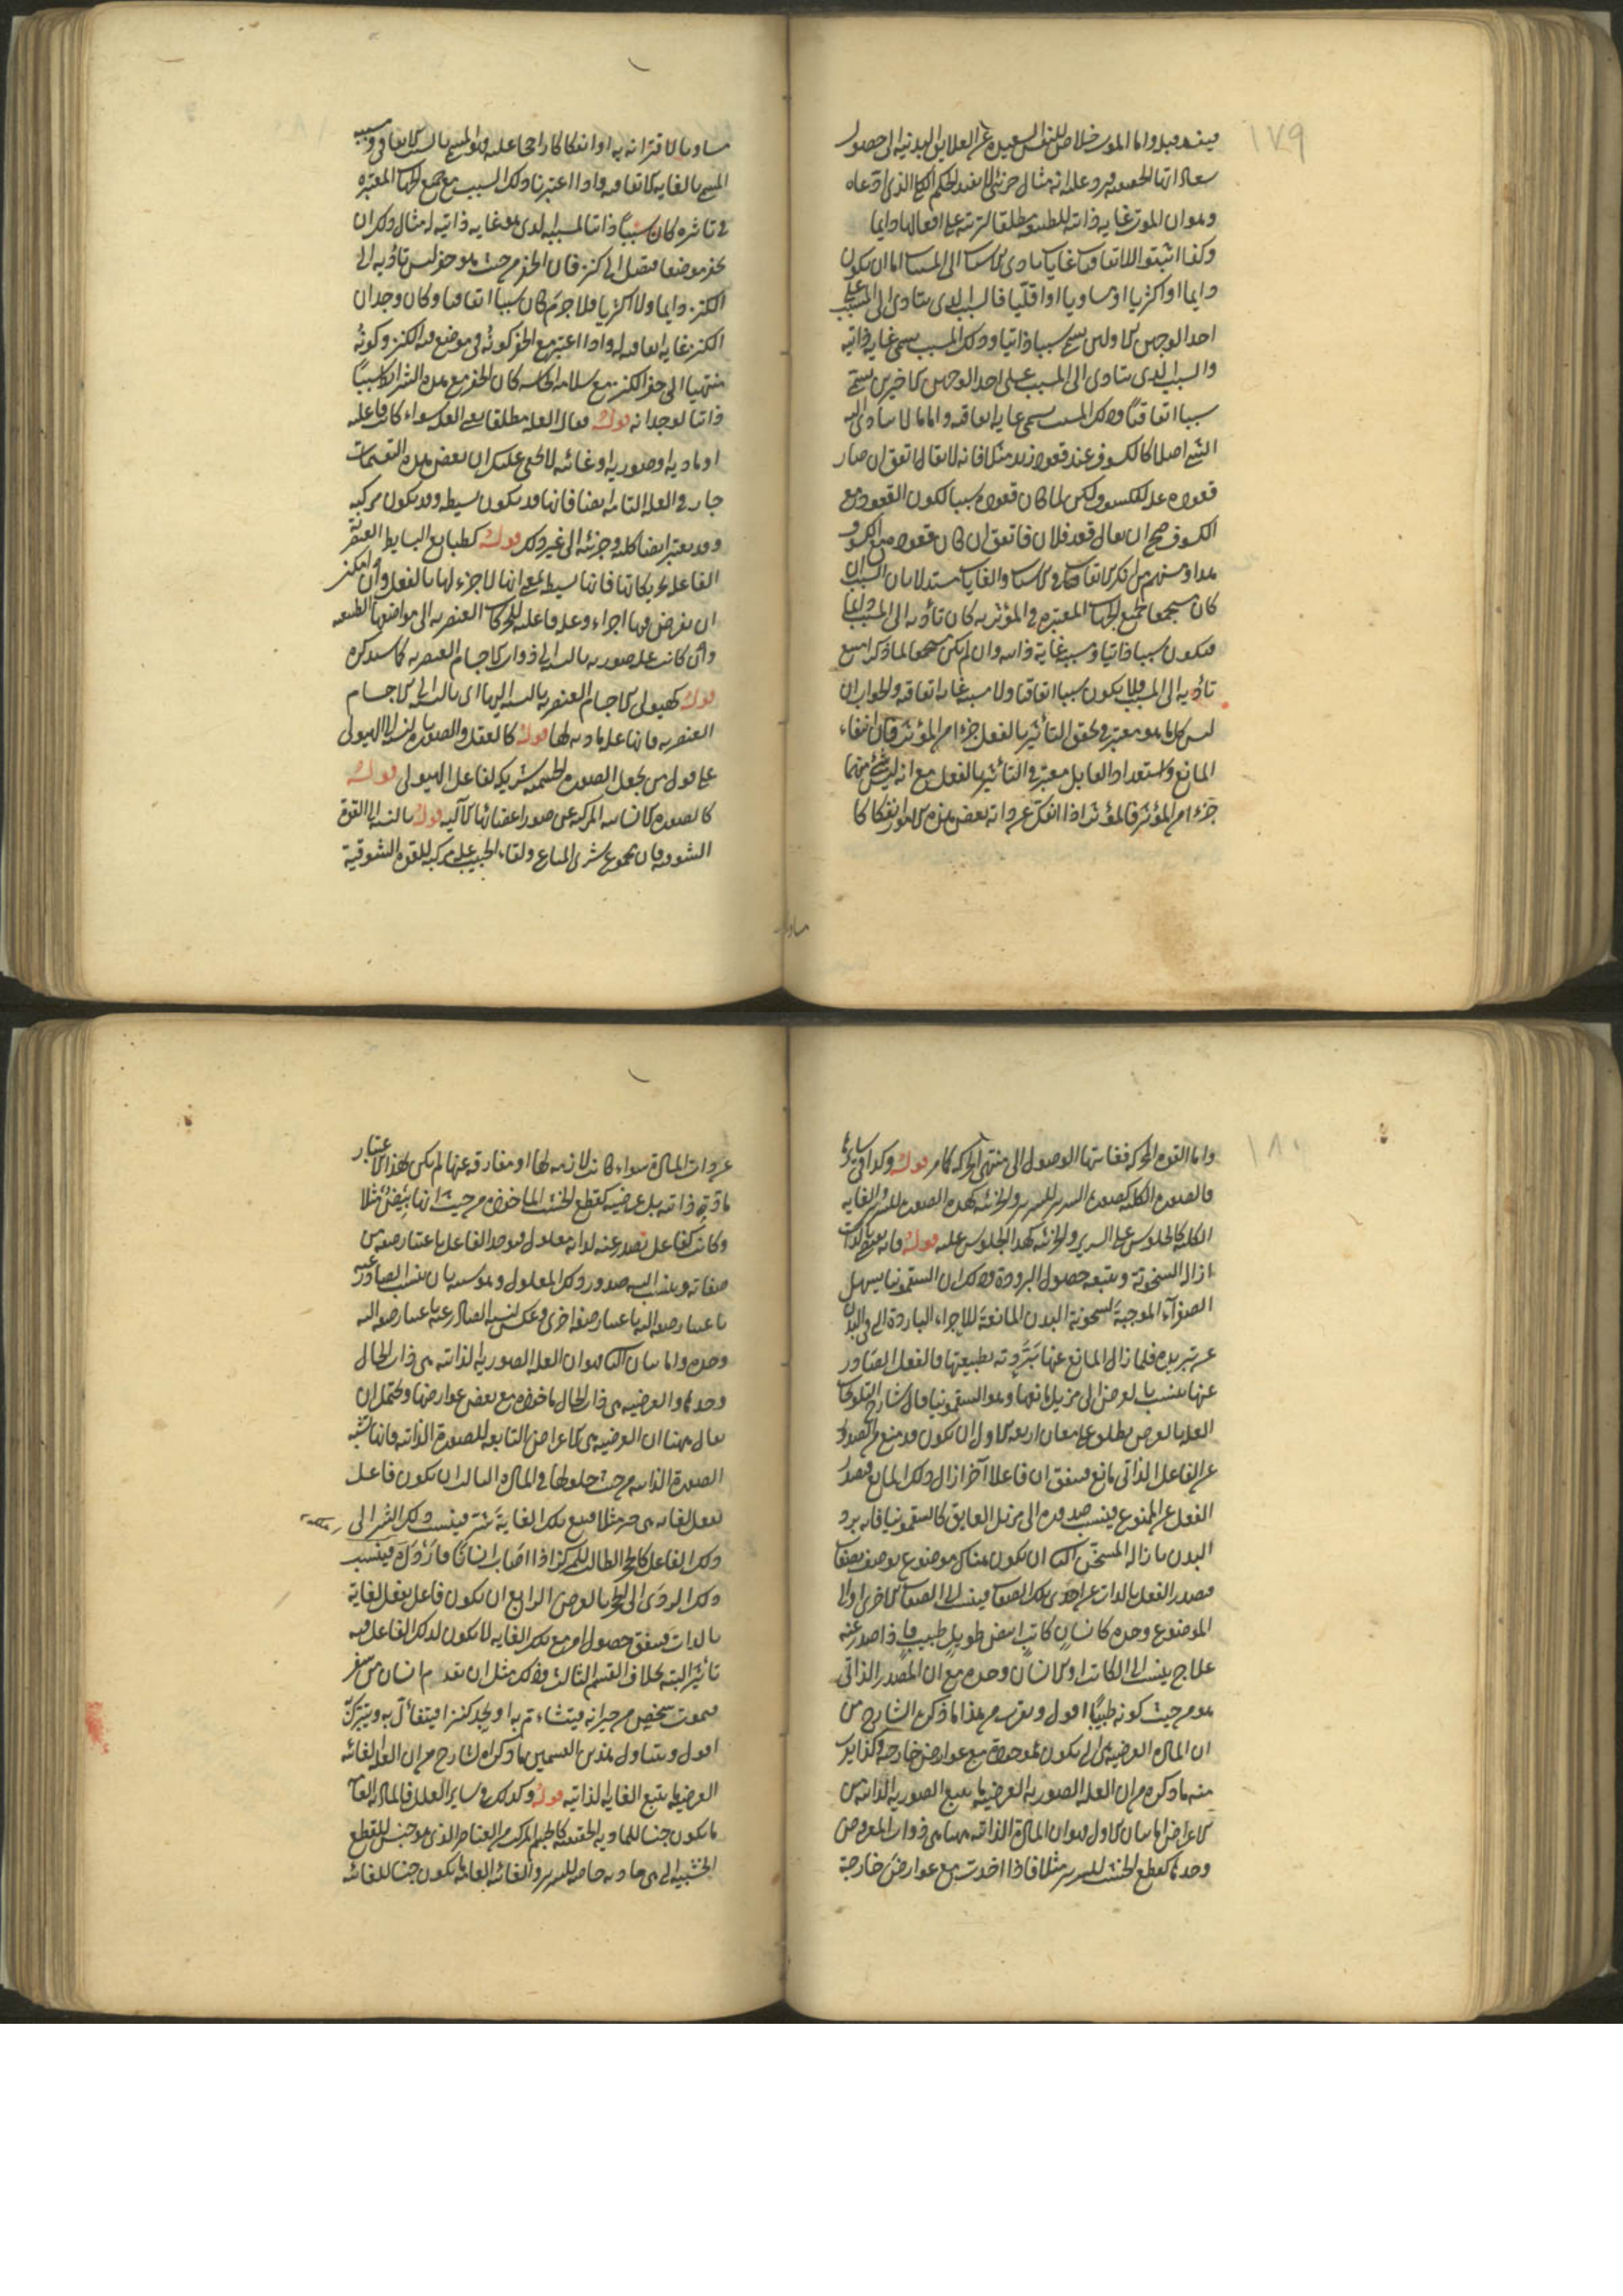 ١٧٩
واما الموت خلاص للنفس السعيدة عن العلايق البدنية الى حصول
سعاداتها الحقيقية ... مثال جزئى لا يفيد الحكم الكلى الذى ادعاه
وهو ان الموت غاية ذاتية للطبيعة مطلقا لترتبه على افعالها دايما
وكذا اثبتوا للاتفاقيات غايات ... الاسباب الى المسببات اما ان يكون
دايما او اكثريا او مساويا او اقليا فالسبب الذى يتادى الى المسبب على
احد الوجهين الاولين يسمى سببا ذاتيا وذلك المسبب يسمى غاية ذاتية
والسبب الذى يتادى الى المسبب على احد الوجهين الاخيرين يسمى
سببا اتفاقيا وذلك المسبب يسمى غاية اتفاقية واما ما لا يتادى اليه
الشى اصلا كالكسوف عند قعود زيد مثلا فانه لا يقال اتفق ان صار
قعوده علة للكسوف ولكن لما كان قعوده سببا لكون القعود مع
الكسوف صح ان يقال قعد فلان فاتفق ان كان قعوده مع الكسوف
هذا ومنهم من انكر الاتفاق فى الاسباب والغايات مستدلا بان السبب ان
كان مستجمعا لجميع الجهات المعتبرة فى المؤثرية كان تأديه الى المسبب دايما
فيكون سببا ذاتيا ومسببه غاية ذاتية وان لم يكن مستجمعا لما ذكر امتنع
تأديه الى المسبب فلا يكون سببا اتفاقيا ولا مسببه غاية اتفاقية والجواب ان
ليس كل ما هو معتبر فى تحقق التأثير بالفعل جزءا من المؤثر فان انتفاء
المانع واستعداد القابل معتبر فى التأثير بالفعل مع انه ليس شئ منهما
جزءا من المؤثر فالمؤثر اذا انفك عن ذاته بعض هذه الامور انفكاكا
مساويا
مساويا لاقترانه به او انفكاكا راجحا عليه فهو المسمى بالسبب الاتفاقى ومسببه
المسمى بالغاية الاتفاقية واذا اعتبرنا ذلك السبب مع جميع الجهات المعتبرة
فى تاثيره كان سببا ذاتيا لمسببه الذى هو غاية ذاتية له مثال ذلك ان
يحفر موضعا فيصل الى كنز فان الحفر من حيث هو حفر ليس تأديه الى
الكنز دايما ولا اكثريا فلا جرم كان سببا اتفاقيا وكان وجدان
الكنز غاية اتفاقية له واذا اعتبر مع الحفر كونه فى موضع فيه الكنز وكونه
منتهيا الى حفر الكنز مع سلامة الحاسة كان الحفر مع هذه الشرايط سببا
ذاتيا لوجدانه قوله فقال العلة مطلقا يعنى العلة سواء كانت فاعلية
او مادية او صورية او غائية لا يخفى عليك ان بعض هذه التقسيمات
جار فى العلة التامة ايضا فانها قد يكون بسيطة وقد يكون مركبة
وقد يعتبر ايضا كلية وجزئية الى غير ذلك قوله كطبايع البسايط العنصرية
الفاعلة لحركاتها فانها بسيطة بمعنى انها لا جزء لها بالفعل وان امكن
ان يفرض فيها اجزاء وعلة فاعلية للحركات العنصرية الى مواضعها الطبيعية
وان كانت علة صورية بالنسبة الى ذوات الاجسام العنصرية كما سيذكره
قوله كهيولى الاجسام العنصرية بالنسبة اليها اى بالنسبة الى الاجسام
العنصرية فانها علة مادية لها قوله كالعقل والصورة بالنسبة الى الهيولى
على قول من يجعل الصورة الجسمية شريكة لفاعل الهيولى قوله
كالصورة الانسانية المركبة من صور اعضائها الآلية قوله بالنسبة الى القوة
الشوقية فان مجموع شرى المتاع ولقاء الحبيب علة مركبة للقوة الشوقية
١٨٠
واما القوة المحركة فغايتها الوصول الى منتهى الحركة كما مر قوله وكذا فى سايرها
فالصورة الكلية كصورة السرير للسرير والجزئية كهذه الصورة للسرير والغاية
الكلية كالجلوس على السرير والجزئية كهذا الجلوس عليه قوله فانه يقتضى بالذات
ازالة السخونة ويتبعه حصول البرودة وذلك ان السقمونيا يسهل
الصفراء الموجبة لسخونة البدن المانعة للاجزاء الباردة التى فى البدن
عن تبريده فلما زال المانع عنها بردته بطبيعتها فالفعل الصادر
عنها ينسب بالعرض الى مزيل مانعها وهو السقمونيا قال شارح التلويحات
العلة بالعرض يطلق على معان اربعة الاول ان يكون قد منع من الصدور
عن الفاعل الذاتى مانع فيتفق ان فاعلا آخر ازال ذلك المانع فيصدر
الفعل عن الممنوع فينسب صدوره الى مزيل العايق كالسقمونيا فانه يبرد
البدن بازالة المسخن الثانى ان يكون هناك موضوع يوصف بصفات
فيصدر الفعل بالذات عن احدى تلك الصفات فينسب الى الصفات الاخرى او الى
الموضوع وحده كانسان كاتب ابيض طويل طبيب فاذا صدر عنه
علاج ينسب الى الكاتب او الى الانسان وحده مع ان المصدر الذاتى
هو من حيث كونه طبيبا اقول ويقرب من هذا ما ذكره الشارح من
ان المادة العرضية هى التى يكون مأخوذة مع عوارض خارجة وكذا يقرب
منه ما ذكره من ان العلة الصورية العرضية ما يتبع الصورية الذاتية من
الاعراض اما بيان الاول فهو ان المادة الذاتية ههنا هى ذوات المعروض
وحدها كقطع الخشب للسرير مثلا فاذا اخذت مع عوارض خارجة
عن ذات المادة سواء كانت لازمة لها او مفارقة عنها لم يكن بهذا الاعتبار
مادة ذاتية بل عرضية كقطع الخشب المأخوذة من حيث انها بيض مثلا
وكانت كفاعل تصدر عنه لذاته معلول فيوجد الفاعل باعتبار صفة من
صفاته وينسب اليه صدور ذلك المعلول ... بان ينسب الصادر عنه
باعتبار صفة اليه باعتبار صفة اخرى وعكس لنسبة الصادر عنه باعتبار صفة اليه
وحده واما بيان الثانى فهو ان العلة الصورية الذاتية هى ذات الحال
وحدها والعرضية هى ذات الحال مأخوذة مع بعض عوارضها ويحتمل ان
يقال ههنا ان العرضية هى الاعراض التابعة للصورة الذاتية فانها تشبه
الصورة الذاتية من حيث حلولها فى المادة الثالث ان يكون فاعل
يفعل لغاية هى خير مثلا فيتبع تلك الغاية شر فينسب ذلك الشر الى
ذلك الفاعل كالحجر الطالب للمركز اذا اصاب انسانا فارداه فينسب
ذلك الردى الى الحجر بالعرض الرابع ان يكون فاعل يفعل لغاية
بالذات فيتفق حصول امر مع تلك الغاية لا يكون لذلك الفاعل فيه
تأثير البتة بخلاف القسم الثالث وذلك مثل ان يقدم انسان من سفر
فيموت شخص من جيرانه فيتشاءم به او يجد كنزا فيتفاءل به ويتبرك
اقول ويتناول هذين القسمين ما ذكره الشارح من ان العلة الغائية
العرضية ما يتبع الغاية الذاتية قوله وكذلك فى ساير العلل فالمادة العامة
ما يكون جنسا للمادية الحقيقية كالجسم المركب من العناصر الذى هو جنس للقطع
الخشبية التى هى مادة خاصة للسرير والغائية العامة ما يكون جنسا للغائية